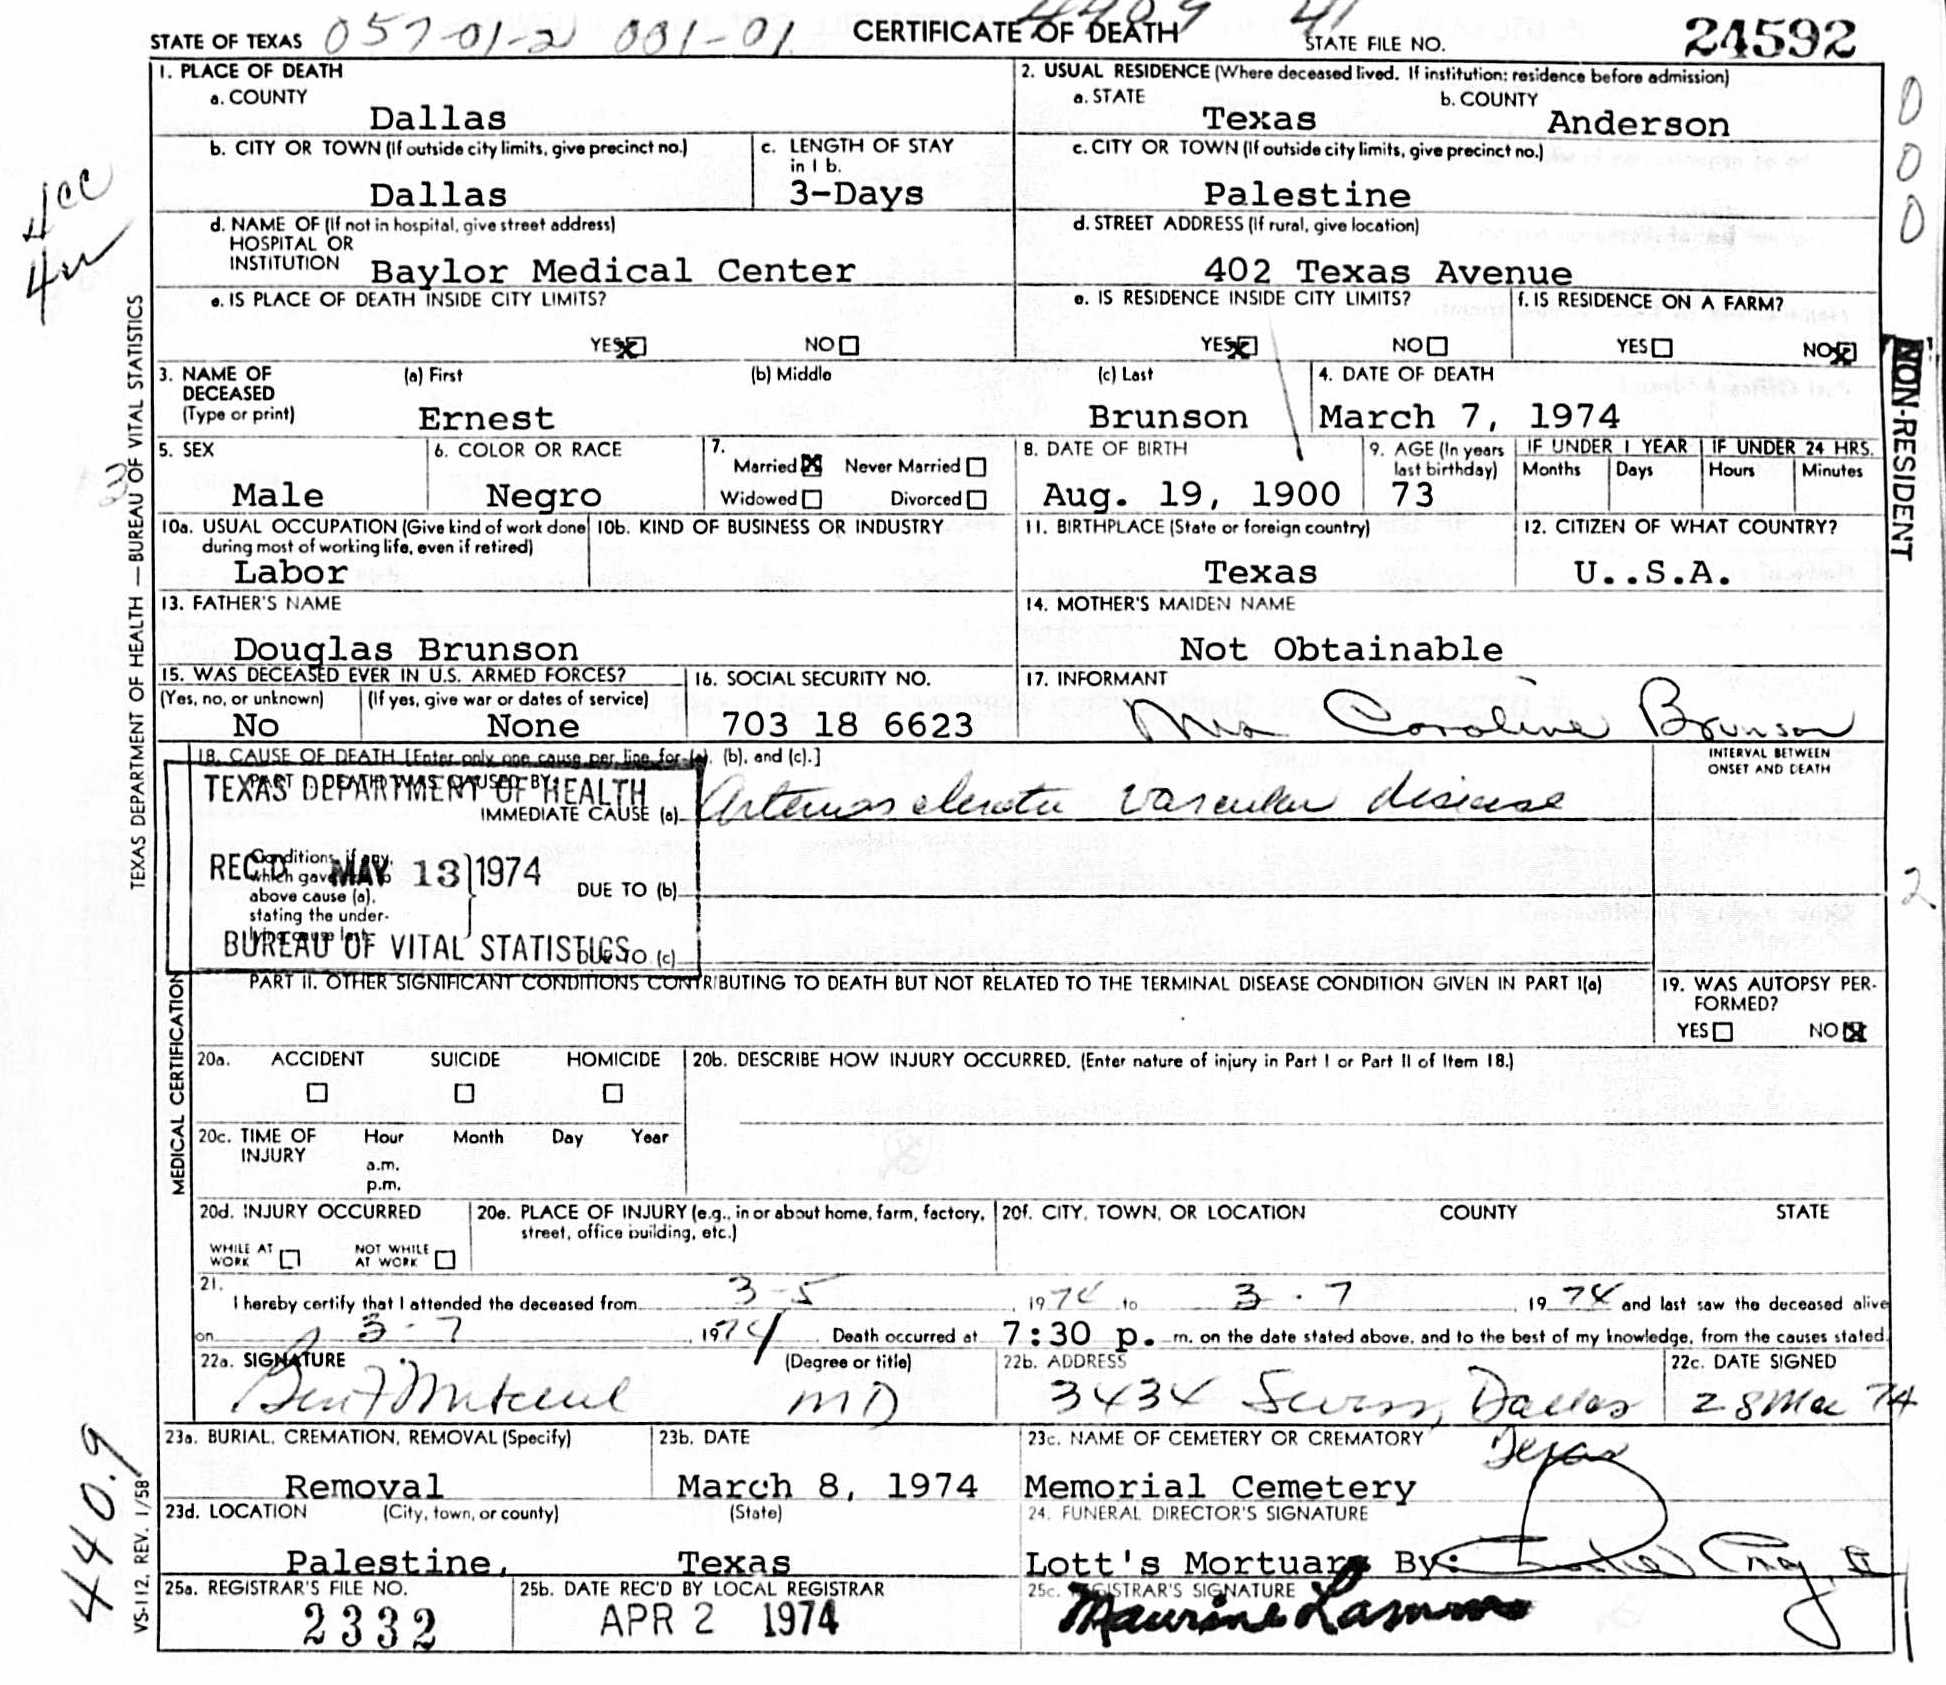 STATE OF TEXAS 057-01-2 001-01 CERTIFICATE OF DEATH 4409 41 STATE FILE NO. 24592
1. PLACE OF DEATH
a. COUNTY
Dallas
2. USUAL RESIDENCE (Where deceased lived. If institution: residence before admission)
a. STATE b. COUNTY
Texas Anderson
b. CITY OR TOWN (If outside city limits, give precinct no.)
Dallas
c. LENGTH OF STAY in 1 b.
3-Days
c. CITY OR TOWN (If outside city limits, give precinct no.)
Palestine
d. NAME OF (If not in hospital, give street address)
HOSPITAL OR
INSTITUTION Baylor Medical Center
d. STREET ADDRESS (If rural, give location)
402 Texas Avenue
e. IS PLACE OF DEATH INSIDE CITY LIMITS?
YES NO
e. IS RESIDENCE INSIDE CITY LIMITS?
YES NO
f. IS RESIDENCE ON A FARM?
YES NO
3. NAME OF DECEASED (Type or print)
(a) First (b) Middle (c) Last
Ernest Brunson
4. DATE OF DEATH
March 7, 1974
5. SEX
Male
6. COLOR OR RACE
Negro
7.
Married Never Married
Widowed Divorced
8. DATE OF BIRTH
Aug. 19, 1900
9. AGE (In years last birthday)
73
IF UNDER 1 YEAR IF UNDER 24 HRS.
Months Days Hours Minutes
10a. USUAL OCCUPATION (Give kind of work done during most of working life, even if retired)
Labor
10b. KIND OF BUSINESS OR INDUSTRY
11. BIRTHPLACE (State or foreign country)
Texas
12. CITIZEN OF WHAT COUNTRY?
U..S.A.
13. FATHER'S NAME
Douglas Brunson
14. MOTHER'S MAIDEN NAME
Not Obtainable
15. WAS DECEASED EVER IN U.S. ARMED FORCES?
(Yes, no, or unknown) (If yes, give war or dates of service)
No None
16. SOCIAL SECURITY NO.
703 18 6623
17. INFORMANT
Mrs Caroline Brunson
18. CAUSE OF DEATH [Enter only one cause per line for (a), (b), and (c).]
INTERVAL BETWEEN ONSET AND DEATH
PART I. DEATH WAS CAUSED BY:
TEXAS DEPARTMENT OF HEALTH
IMMEDIATE CAUSE (a) vascular disease
Conditions, if any,
which gave
above cause (a),
stating the under-
lying cause last.
REC'D MAY 13 1974
DUE TO (b)
BUREAU OF VITAL STATISTICS
DUE TO (c)
PART II. OTHER SIGNIFICANT CONDITIONS CONTRIBUTING TO DEATH BUT NOT RELATED TO THE TERMINAL DISEASE CONDITION GIVEN IN PART I(a)
19. WAS AUTOPSY PER-
FORMED?
YES NO
20a. ACCIDENT SUICIDE HOMICIDE
20b. DESCRIBE HOW INJURY OCCURRED. (Enter nature of injury in Part I or Part II of Item 18.)
20c. TIME OF INJURY Hour Month Day Year
a.m.
p.m.
20d. INJURY OCCURRED
WHILE AT WORK NOT WHILE AT WORK
20e. PLACE OF INJURY (e.g., in or about home, farm, factory, street, office building, etc.)
20f. CITY, TOWN, OR LOCATION COUNTY STATE
21.
I hereby certify that I attended the deceased from 3-5, 1974 to 3-7, 1974 and last saw the deceased alive
on 3-7, 1974. Death occurred at 7:30 p. m. on the date stated above, and to the best of my knowledge, from the causes stated.
22a. SIGNATURE (Degree or title)
Ben F Mitchell MD
22b. ADDRESS
3434 Swiss, Dallas
Texas
22c. DATE SIGNED
28 Mar 74
23a. BURIAL, CREMATION, REMOVAL (Specify)
Removal
23b. DATE
March 8, 1974
23c. NAME OF CEMETERY OR CREMATORY
Memorial Cemetery
23d. LOCATION (City, town, or county) (State)
Palestine, Texas
24. FUNERAL DIRECTOR'S SIGNATURE
Lott's Mortuary By:
25a. REGISTRAR'S FILE NO.
2332
25b. DATE REC'D BY LOCAL REGISTRAR
APR 2 1974
25c. REGISTRAR'S SIGNATURE
Maurine
4cc
TEXAS DEPARTMENT OF HEALTH — BUREAU OF VITAL STATISTICS
3
MEDICAL CERTIFICATION
440.9
VS-112, REV. 1/58
0
0
0
NON-RESIDENT
2